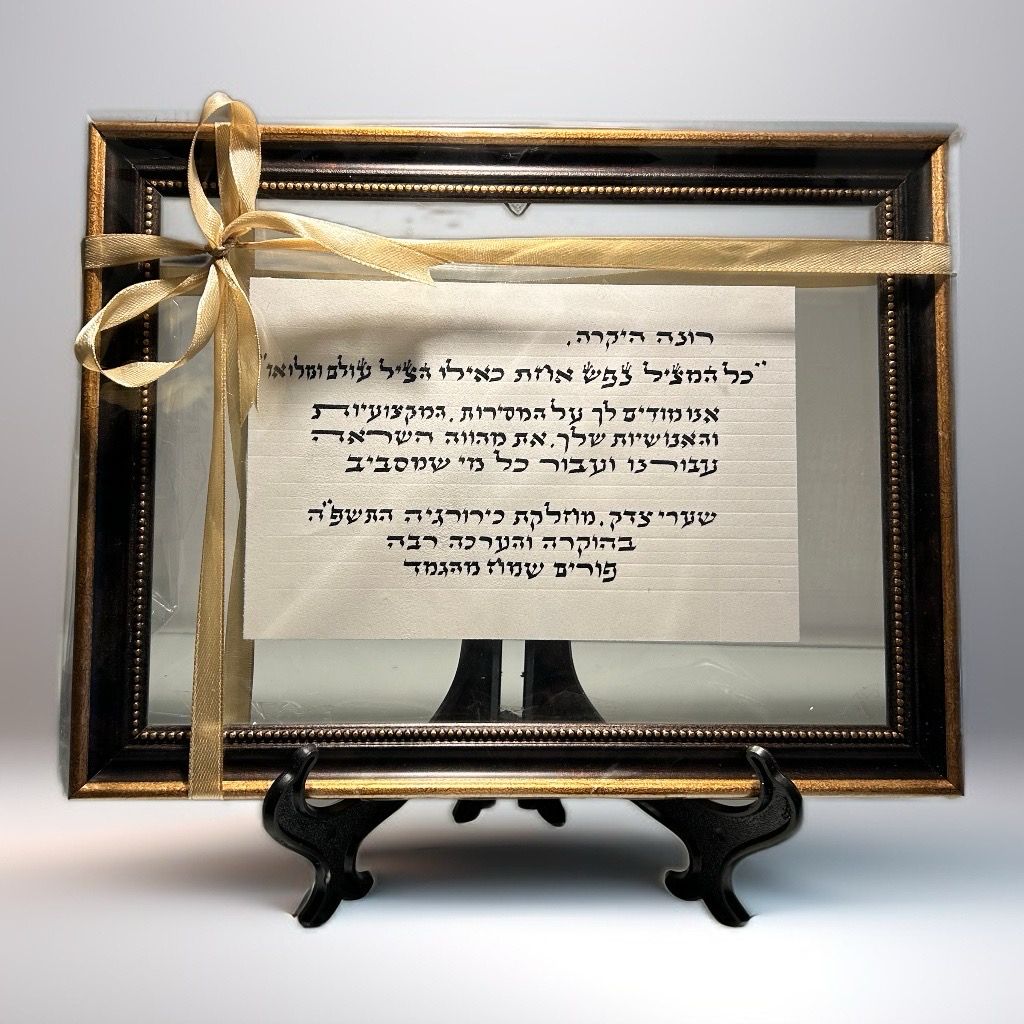 רונה היקרה,
"כל המציל נפש אחת כאילו הציל עולם ומלואו"
אנו מודים לך על המסירות, המקצועיות
והאנושיות שלך, את מהווה השראה
עבורנו ועבור כל מי שמסביב
שערי צדק, מחלקת כירורגיה התשפ"ה
בהוקרה והערכה רבה
פורים שמח מהגמד